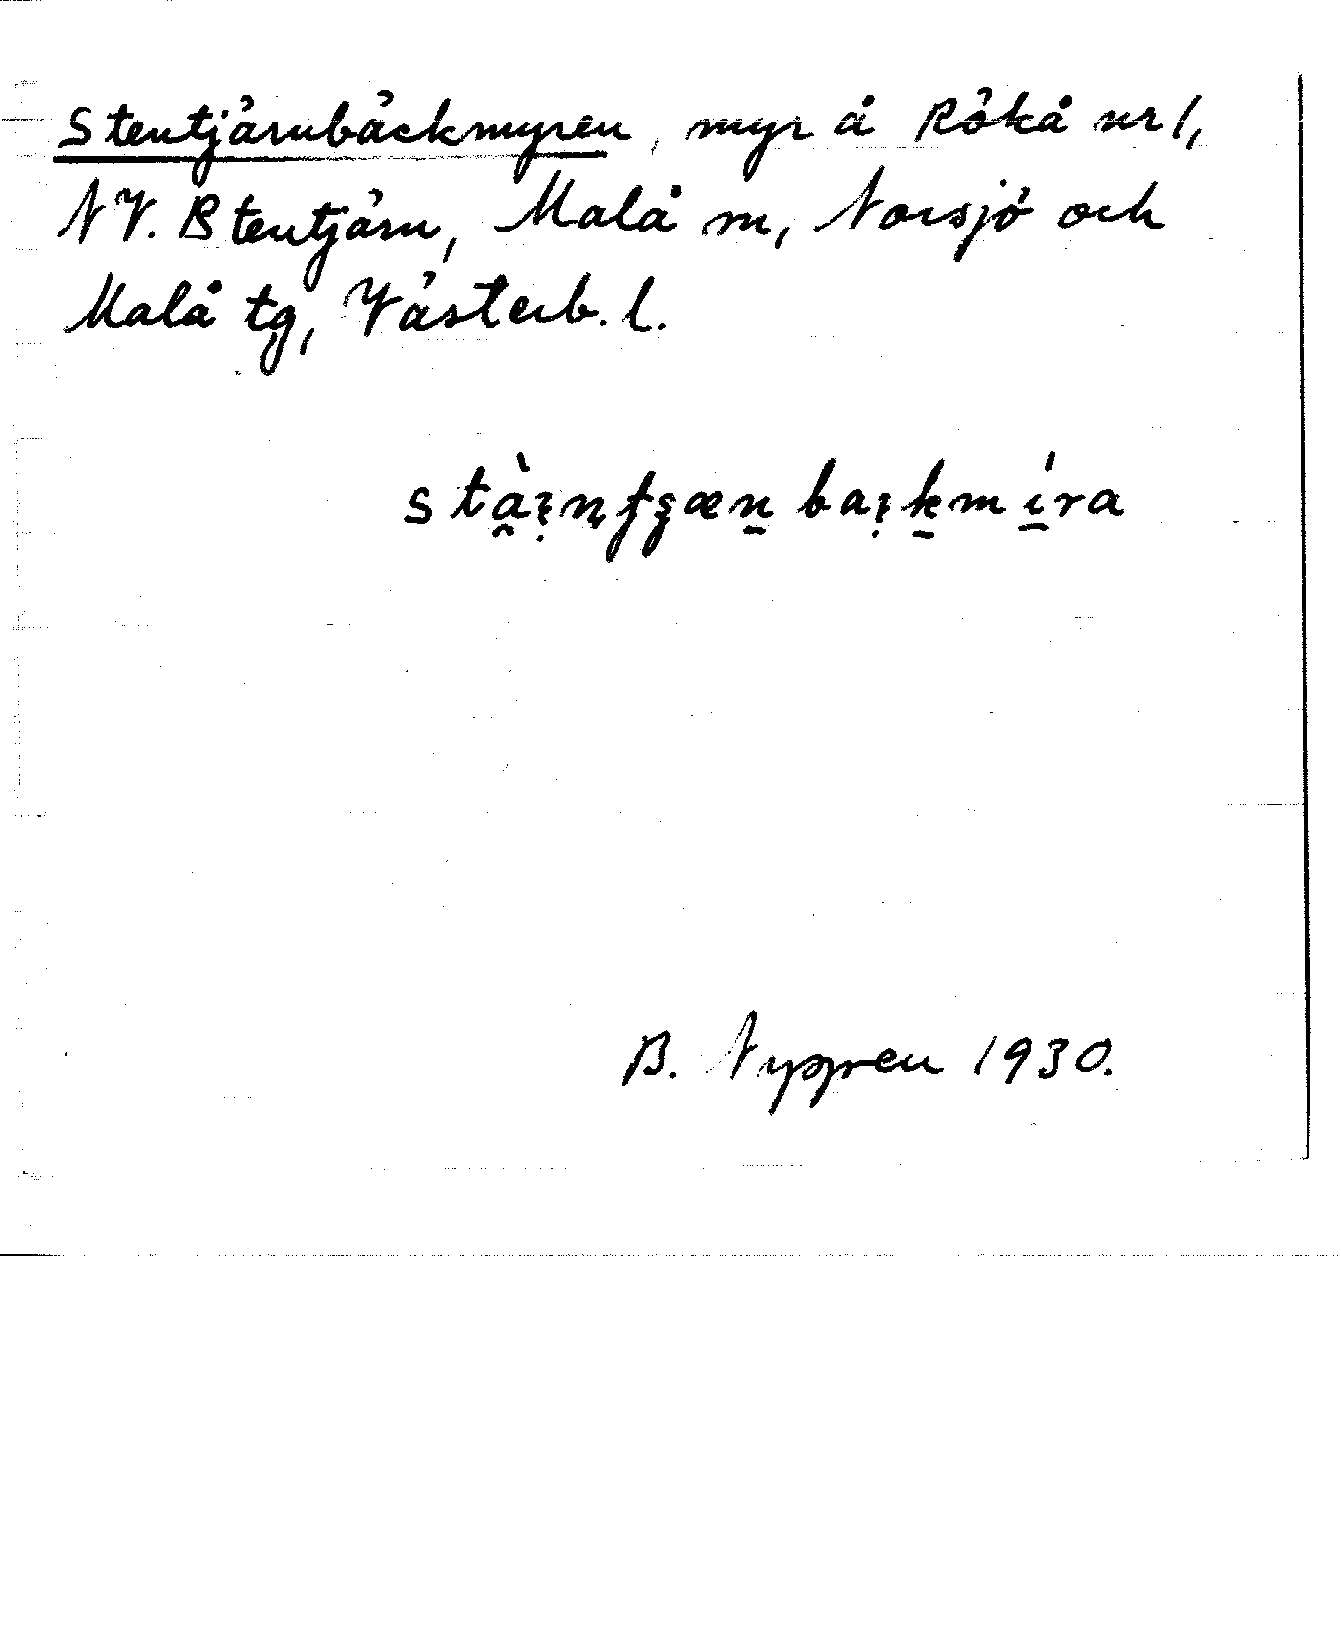 Stentjärnbäckmyren, myr å Rökå nr 1,
NV. Stentjärn, Malå sn, Norsjö och
Malå tg, Västerb. l.
B. Nygren 1930.